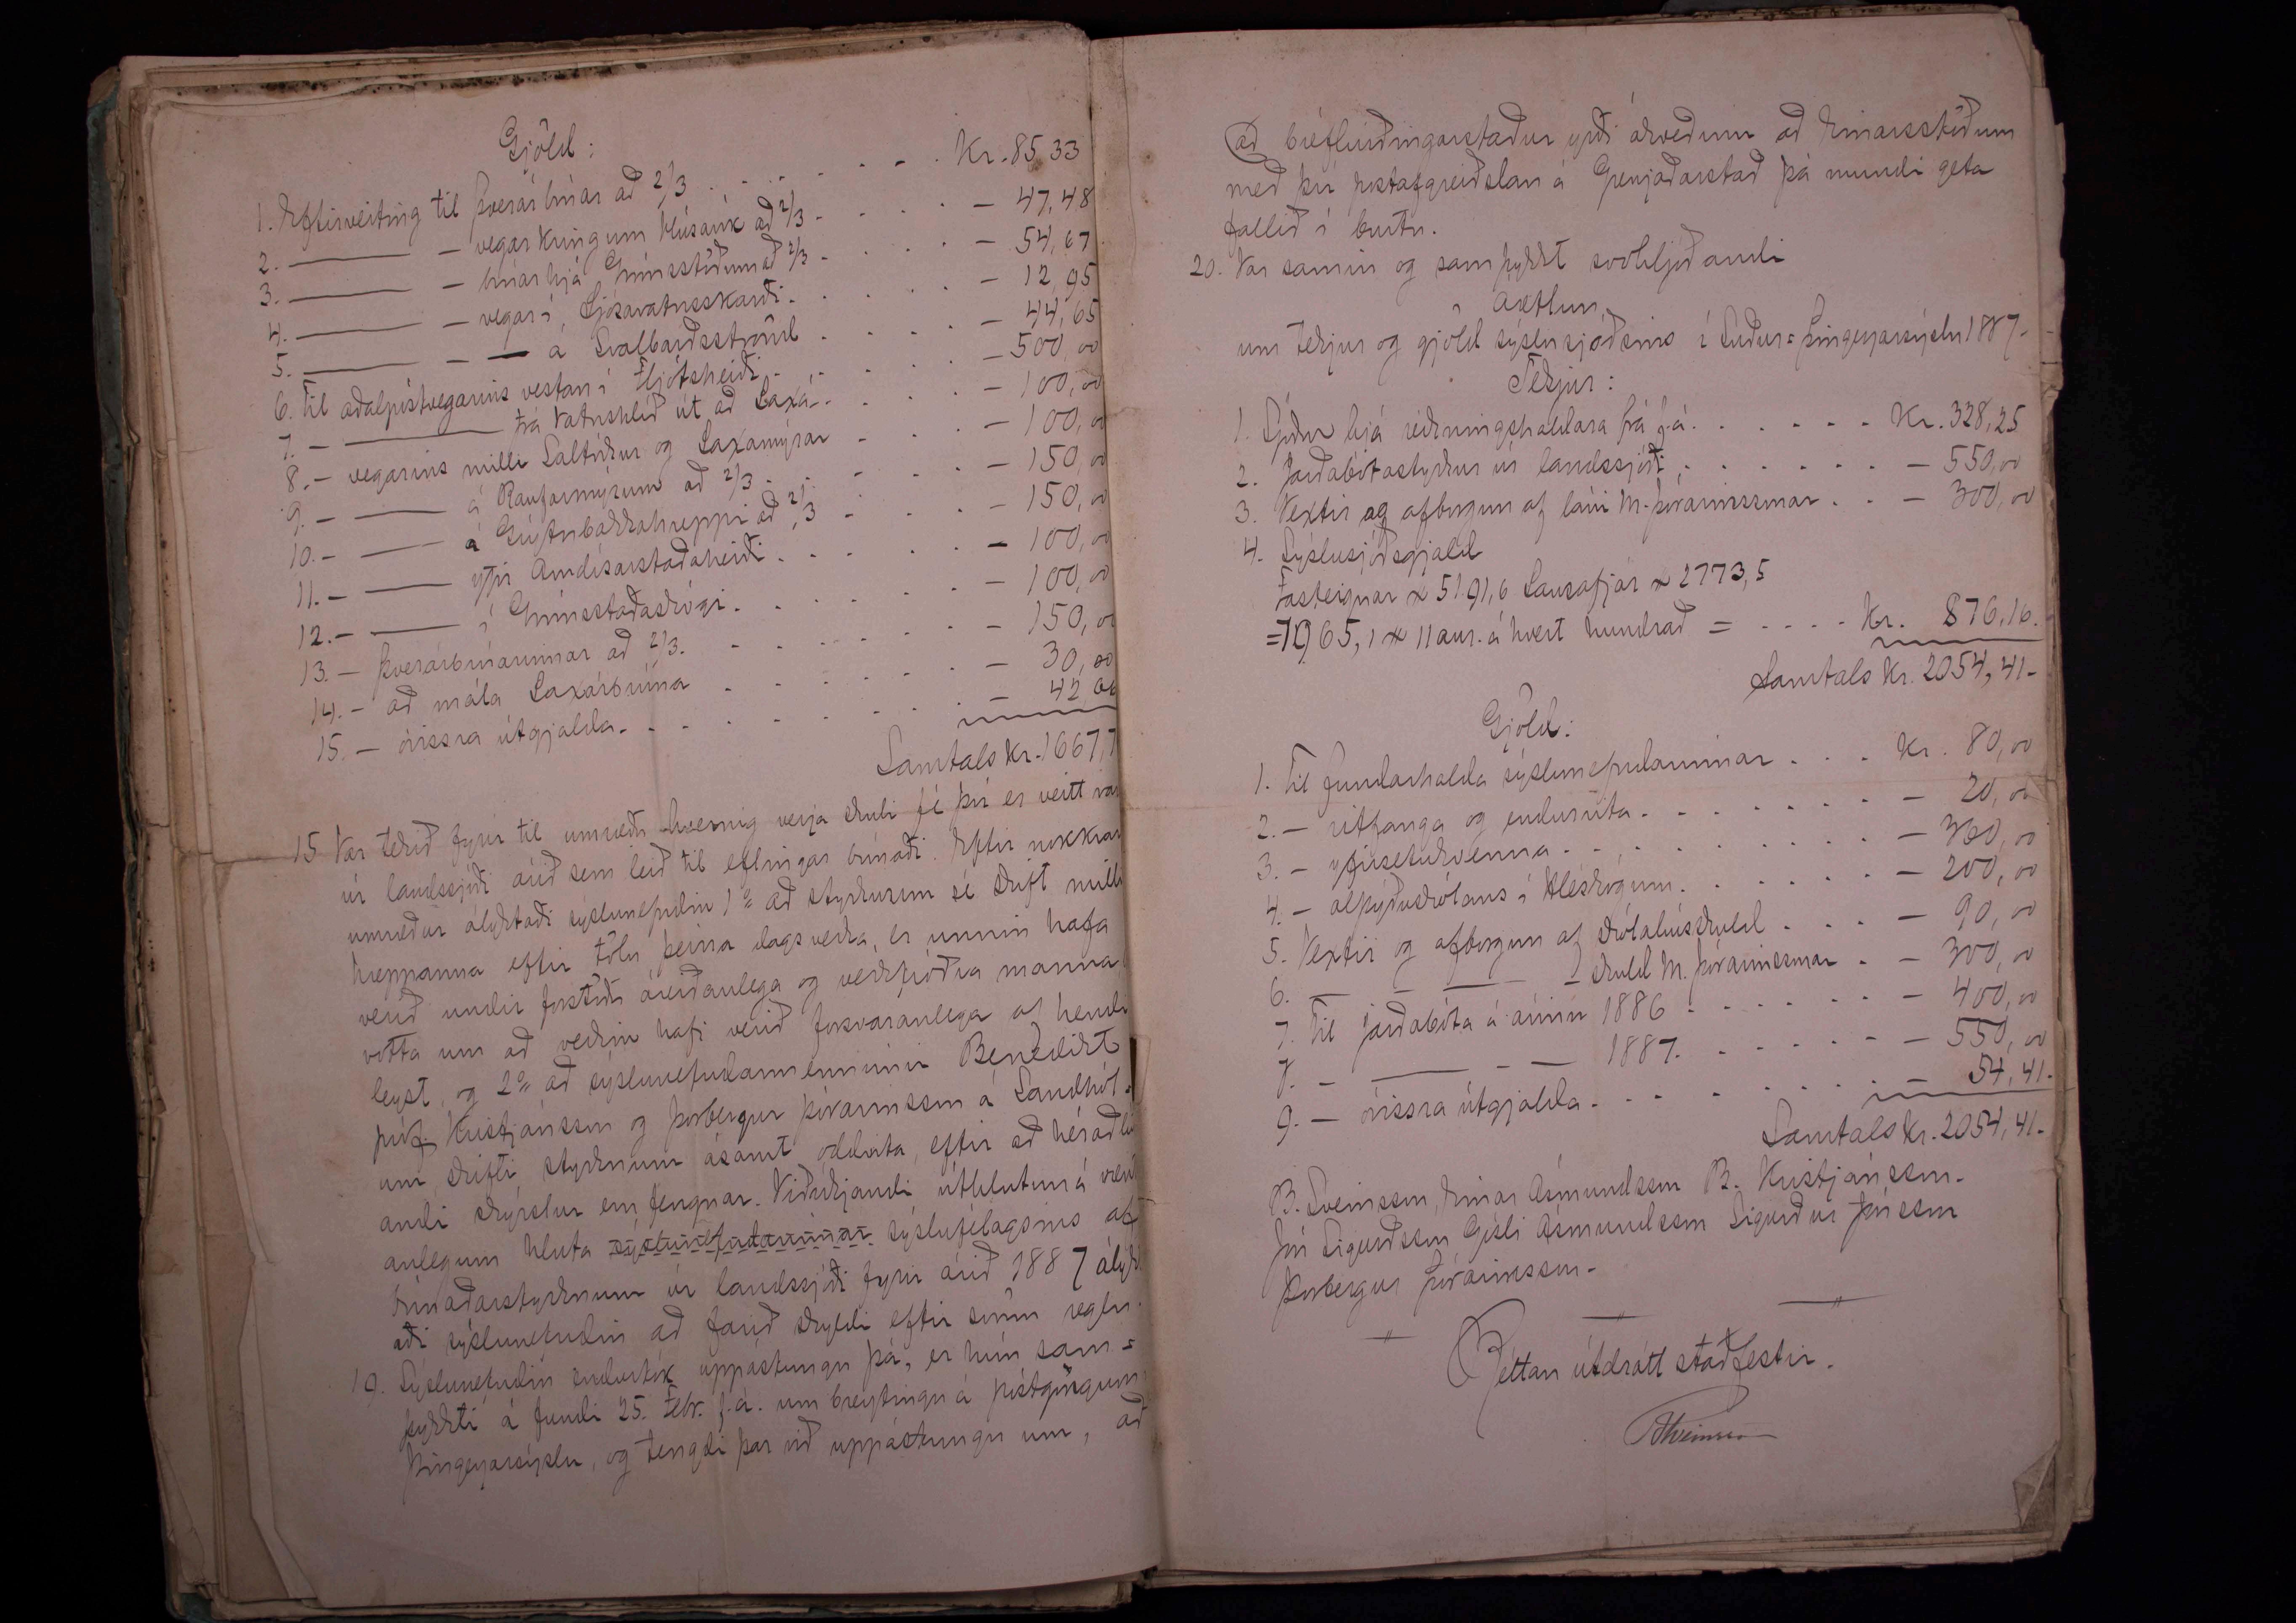 Gjöld:
1. Eftirveiting til Þverárbrúar að 2/3 . . . . . . . Kr. 85,33
2. ——— — vegar kringum Húsavík að 2/3 . . . . — 47,48
3. ——— — brúar hjá Grímsstöðum að 2/3 . . . . — 54,67
4. ——— — vegar í Ljósavatnsskarði . . . . . — 12,95
5. ——— — — á Svalbarðsströnd . . . . . — 44,65
6. Til aðalpóstvegarins vestan í Fljótsheiði . . . . — 500,00
7. — ——— frá Vatnshlíð út að Laxá . . . . — 100,00
8. — vegarins milli Saltvíkur og Laxamýrar . . . — 100,00
9. — ——— á Raufarmýrum að 2/3 . . . . . — 150,00
10. — ——— á Grýtubakkahreppi að 2/3 . . . . — 150,00
11. — ——— yfir Arndísarstaðaheiði . . . . . — 100,00
12. — ——— í Grímsstaðaskógi . . . . . . — 100,00
13. — Þverárbrúarinnar að 2/3 . . . . . . . — 150,00
14. — að mála Laxárbrúna . . . . . . — 30,00
15. — óvissra útgjalda . . . . . . . . — 42
Samtals kr. 1667,7
15 Var tekið fyrir til umræðu hvernig verja skuli fé því er veitt var
úr landssjóði árið sem leið til eflingar búnaði. Eftir nokkrar
umræður ályktaði sýslunefndin 1º að styrknum sé skift milli
hreppanna eftir tölu þeirra dagsverka, er unnin hafa
verið undir forstöðu áreiðanlega og verkfróðra manna
votta um að verkin hafi verið forsvaranlega af hendi
leyst, og 2º að sýslunefndarmennirnir Benedikt
próf. Kristjánsson og Þorbergur Þórarinsson á Sandhól-
um skifti styrknum ásamt oddvita, eftir að hérað lút
andi skýrslur eru fengnar. Viðvíkjandi úthlutun á vænt
anlegum hluta sýslunefndarinnar sýslufélagsins af
búnaðarstyrknum úr landssjóði fyrir árið 1887 álykt
aði sýslunefndin að farið skyldi eftir sömu reglu.
19. Sýslunefndin endurtók uppástungu þá, er hún sam=
þykkti á fundi 25. Febr. f.á. um breytingu á póstgöngum
Þingeyjarsýslu, og tengdi þar við uppástungu um, að
að bréfhirðingarstaður yrði ákveðinn að Einarsstöðum
með því póstafgreiðslan á Grenjaðarstað þá mundi geta
fallið í burtu.
20. Var samin og samþykkt svohljóðandi
Áætlun,
um tekjur og gjöld sýslusjóðsins í Suður=Þingeyjarsýslu 1887.
Tekjur:
1. Sjóður hjá reikningshaldara frá f.á. . . . . . Kr. 328,25
2. Jarðabótastyrkur úr landssjóði . . . . . . . — 550,00
3. Vextir og afborgun af láni M. Þórarinssonar . . — 300,00
4. Sýslusjóðsgjald
Fasteignar x 5191,6 Lausafjár x 2773,5
= 7965,1 x 11 aur. á hvert hundrað = . . . . Kr. 876,16.
Samtals Kr. 2054,41-
Gjöld:
1. Til fundarhalda sýslunefndarinnar . . . Kr. 80,00
2. — ritfanga og endurrita . . . . . . . — 20,00
3. — yfirsetukvenna . . . . . . . . . — 360,00
4. — alþýðuskólans í Hléskógum . . . . . . — 200,00
5. Vextir og afborgun af skólahússkuld . . . — 90,00
6. — — — — skuld M. Þórarinssonar . — 300,00
7. Til jarðabóta á árinu 1886 . . . . . . — 400,00
8. — ——— — — 1887 . . . . . . — 550,00
9. — óvissra útgjalda . . . . . . . . — 54,41-
Samtals Kr. 2054,41-
B. Sveinsson, Einar Ásmundsson B. Kristjánsson.
Jón Sigurðsson, Gísli Ásmundsson Sigurður Jónsson
Þorbergur Þórarinsson-
Réttan útdrátt staðfestir.
BSveinsson